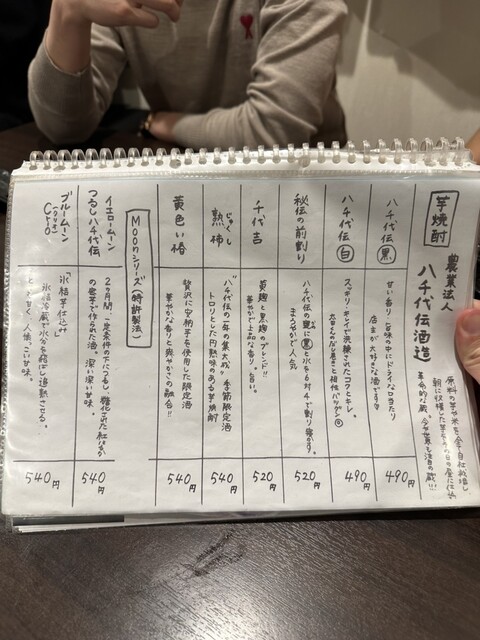 芋焼酎
農業法人
八千代伝酒造
原料の芋や米を全て自社栽培し
朝に収穫した芋をその日の釜に仕込む
革命的な蔵。今や世界も注目の蔵!!!
八千代伝 黒
甘い香り・旨味の中にドライな口当たり
店主が大好きな酒です
490円
八千代伝 白
スッキリ・キレイで洗練されたコクとキレ。
相性バツグン
490円
秘伝の前割り
八千代伝の甕に黒と水を6対4で割り寝かす。
まろやかで人気
520円
千代吉
黄麹と黒麹のブレンド!!
華やかで上品な香り。旨い。
520円
じゅくし
熟柿
"八千代伝の一年の集大成" 季節限定酒
トロリとした円熟味のある芋焼酎
540円
黄色い椿
贅沢に安納芋を使用した限定酒
華やかな香りと爽やかさの融合!!
540円
Moonシリーズ(特許製法)
イエロームーン
つるし八千代伝
2ヶ月間、一定条件の下につるし糖化された紅はるか
の蜜芋で作られた酒。深い深い甘味。
540円
ブルームーン
(クリオ)
Crio
"氷結芋仕込み"
氷結冷蔵で水分を飛ばし追熟させる。
とことん甘く、人懐っこい甘味。
540円